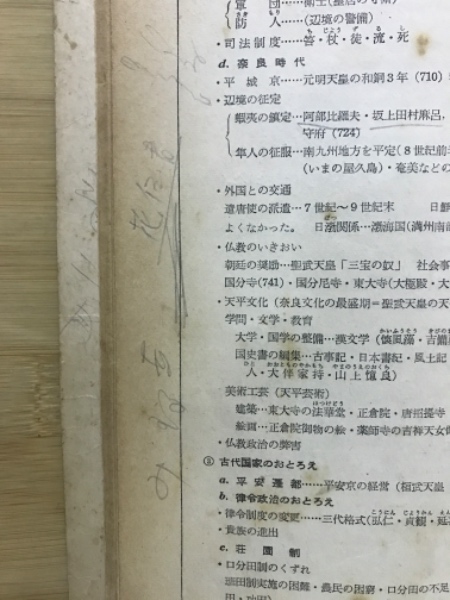 団……衛士(皇居の守備)
防人……(辺境の警備)
・司法制度……笞・杖・徒・流・死
d. 奈良時代
・平城京……元明天皇の和銅3年(710)
・辺境の征定
蝦夷の鎮定…阿部比羅夫・坂上田村麻呂,
守府(724)
隼人の征服…南九州地方を平定(8世紀前
(いまの屋久島)・奄美などの
・外国との交通
遣唐使の派遣…7世紀〜9世紀末 日
よくなかった。 日渤関係…渤海国(満州南
・仏教のいきおい
朝廷の奨励…聖武天皇「三宝の奴」 社会事
国分寺(741)・国分尼寺・東大寺(大極殿・大
・天平文化(奈良文化の最盛期=聖武天皇の天
学問・文学・教育
大学・国学の整備…漢文学(懐風藻・吉備
国史書の編集…古事記・日本書紀・風土記
人・大伴家持・山上憶良)
美術工芸(天平芸術)
建築…東大寺の法華堂・正倉院・唐招提寺
絵画…正倉院御物の絵・薬師寺の吉祥天女
・仏教政治の弊害
③ 古代国家のおとろえ
a. 平安遷都……平安京の経営(桓武天皇
b. 律令政治のおとろえ
・律令制度の変更……三代格式(弘仁・貞観・延
・貴族の進出
c. 荘園制
・口分田制のくずれ
班田制実施の困難・農民の困窮・口分田の不足
田・功田)